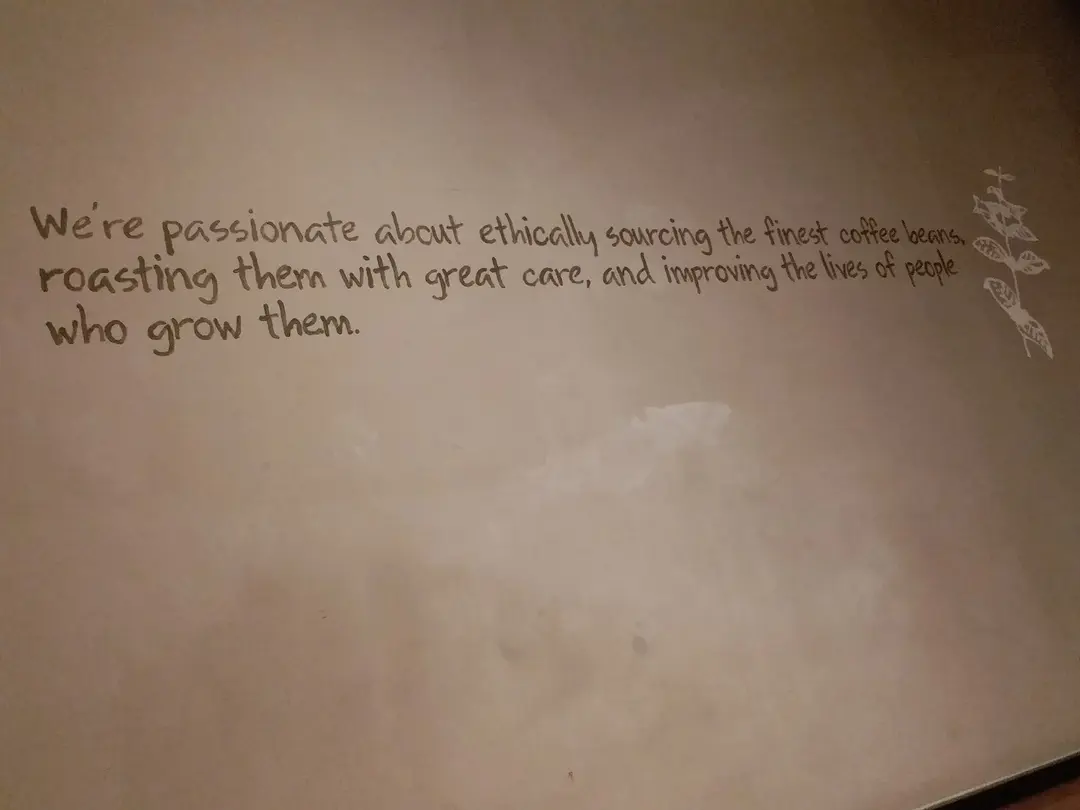 We're passionate about ethically sourcing the finest coffee beans,
roasting them with great care, and improving the lives of people
who grow them.